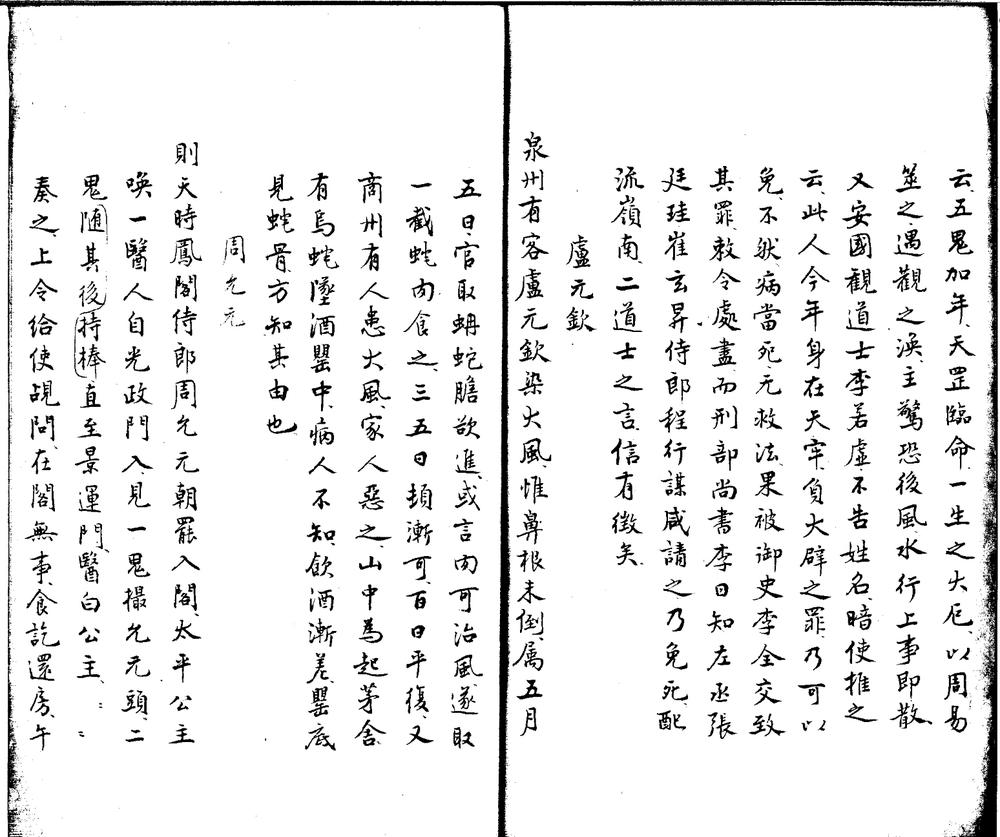 云五鬼加年天罡臨命一生之大厄以周易
筮之遇觀之渙主驚恐後風水行上事即散
又安國觀道士李若虛不告姓名暗使推之
云此人今年身在天牢負大辟之罪乃可以
免不然病當死无救法果被御史李全交致
其罪敕令處盡而刑部尚書李日知左丞張
廷珪崔玄昇侍郎程行謀咸請之乃免死配
流嶺南二道士之言信有徵矣
盧元欽
泉州有客盧元欽染大風惟鼻根未倒属五月
五日官取蚺蛇膽欲進或言肉可治風遂取
一截蛇肉食之三五日頓漸可百日平復又
商州有人患大風家人惡之山中為起茅舍
有烏蛇墜酒罌中病人不知飲酒漸差罌底
見蛇骨方知其由也
周允元
則天時鳳閣侍郎周允元朝罷入閣太平公主
喚一醫人自光政門入見一鬼撮允元頭二
鬼隨其後持棒直至景運門醫白公主〻〻
奏之上令給使覘問在閣無事食訖還房午